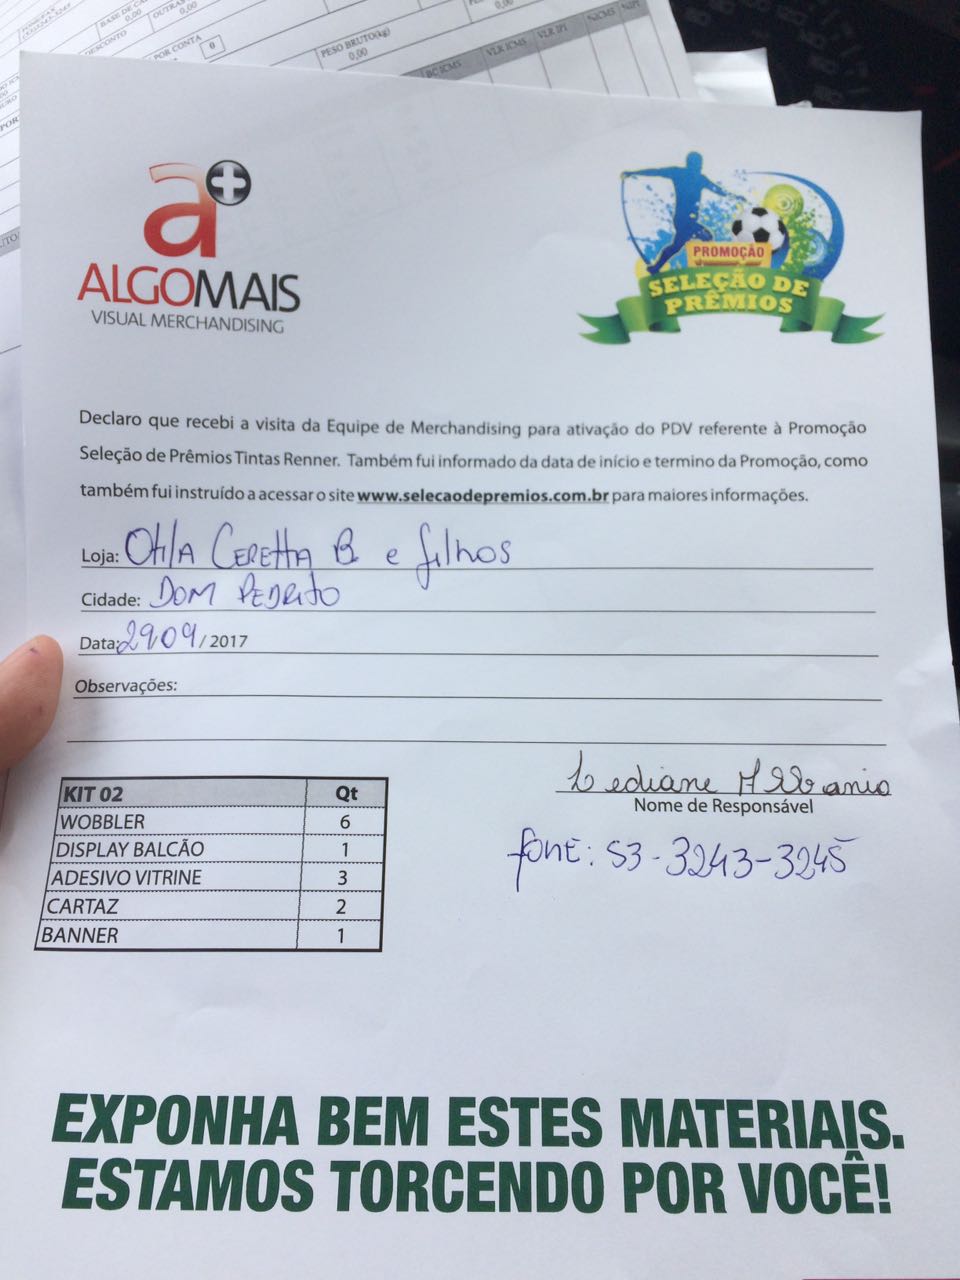 BASE DE
0,00
DESCONTO
OUTRAS
POR CONTA
0
PESO BRUTO(kg)
0,00
0,00
BC ICMS
VLR ICMS
VLR IPI
%ICMS
%IPI
a+
ALGOMAIS
VISUAL MERCHANDISING
PROMOÇÃO
SELEÇÃO DE
PRÊMIOS
Declaro que recebi a visita da Equipe de Merchandising para ativação do PDV referente à Promoção
Seleção de Prêmios Tintas Renner. Também fui informado da data de início e termino da Promoção, como
também fui instruído a acessar o site www.selecaodepremios.com.br para maiores informações.
Loja: Otila Ceretta B e filhos
Cidade: DOM PEDRITO
Data: 2909 / 2017
Observações:
Lediane Albanio
Nome de Responsável
fone: 53-3243-3245
KIT 02 Qt
WOBBLER 6
DISPLAY BALCÃO 1
ADESIVO VITRINE 3
CARTAZ 2
BANNER 1
EXPONHA BEM ESTES MATERIAIS.
ESTAMOS TORCENDO POR VOCÊ!